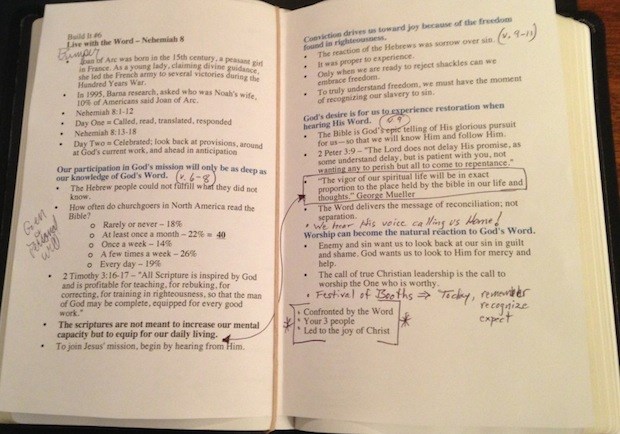 Build It #6
Live with the Word – Nehemiah 8
Joan of Arc was born in the 15th century, a peasant girl
in France. As a young lady, claiming divine guidance,
she led the French army to several victories during the
Hundred Years War.
• In 1995, Barna research, asked who was Noah's wife,
10% of Americans said Joan of Arc.
• Nehemiah 8:1-12
• Day One = Called, read, translated, responded
• Nehemiah 8:13-18
• Day Two = Celebrated; look back at provisions, around
at God's current work, and ahead in anticipation
Our participation in God's mission will only be as deep as
our knowledge of God's Word. (v. 6-8)
• The Hebrew people could not fulfill what they did not
know.
• How often do churchgoers in North America read the
Bible?
o Rarely or never – 18%
o At least once a month – 22% = 40
o Once a week – 14%
o A few times a week – 26%
o Every day – 19%
• 2 Timothy 3:16-17 – "All Scripture is inspired by God
and is profitable for teaching, for rebuking, for
correcting, for training in righteousness, so that the man
of God may be complete, equipped for every good
work."
• The scriptures are not meant to increase our mental
capacity but to equip for our daily living.
• To join Jesus' mission, begin by hearing from Him.
Conviction drives us toward joy because of the freedom
found in righteousness. (v. 9-11)
• The reaction of the Hebrews was sorrow over sin.
• It was proper to experience.
• Only when we are ready to reject shackles can we
embrace freedom.
• To truly understand freedom, we must have the moment
of recognizing our slavery to sin.
God's desire is for us to experience restoration when
hearing His Word.
• The Bible is God's epic telling of His glorious pursuit
for us—so that we will know Him and follow Him.
• 2 Peter 3:9 – "The Lord does not delay His promise, as
some understand delay, but is patient with you, not
wanting any to perish but all to come to repentance."
• "The vigor of our spiritual life will be in exact
proportion to the place held by the bible in our life and
thoughts." George Mueller
• The Word delivers the message of reconciliation; not
separation.
• We hear His voice calling us Home!
Worship can become the natural reaction to God's Word.
• Enemy and sin want us to look back at our sin in guilt
and shame. God wants us to look to Him for mercy and
help.
• The call of true Christian leadership is the call to
worship the One who is worthy.
• Festival of Booths ⇒ Today, remember
recognize
expect
* Confronted by the Word
* Your 3 people *
* Led to the joy of Christ